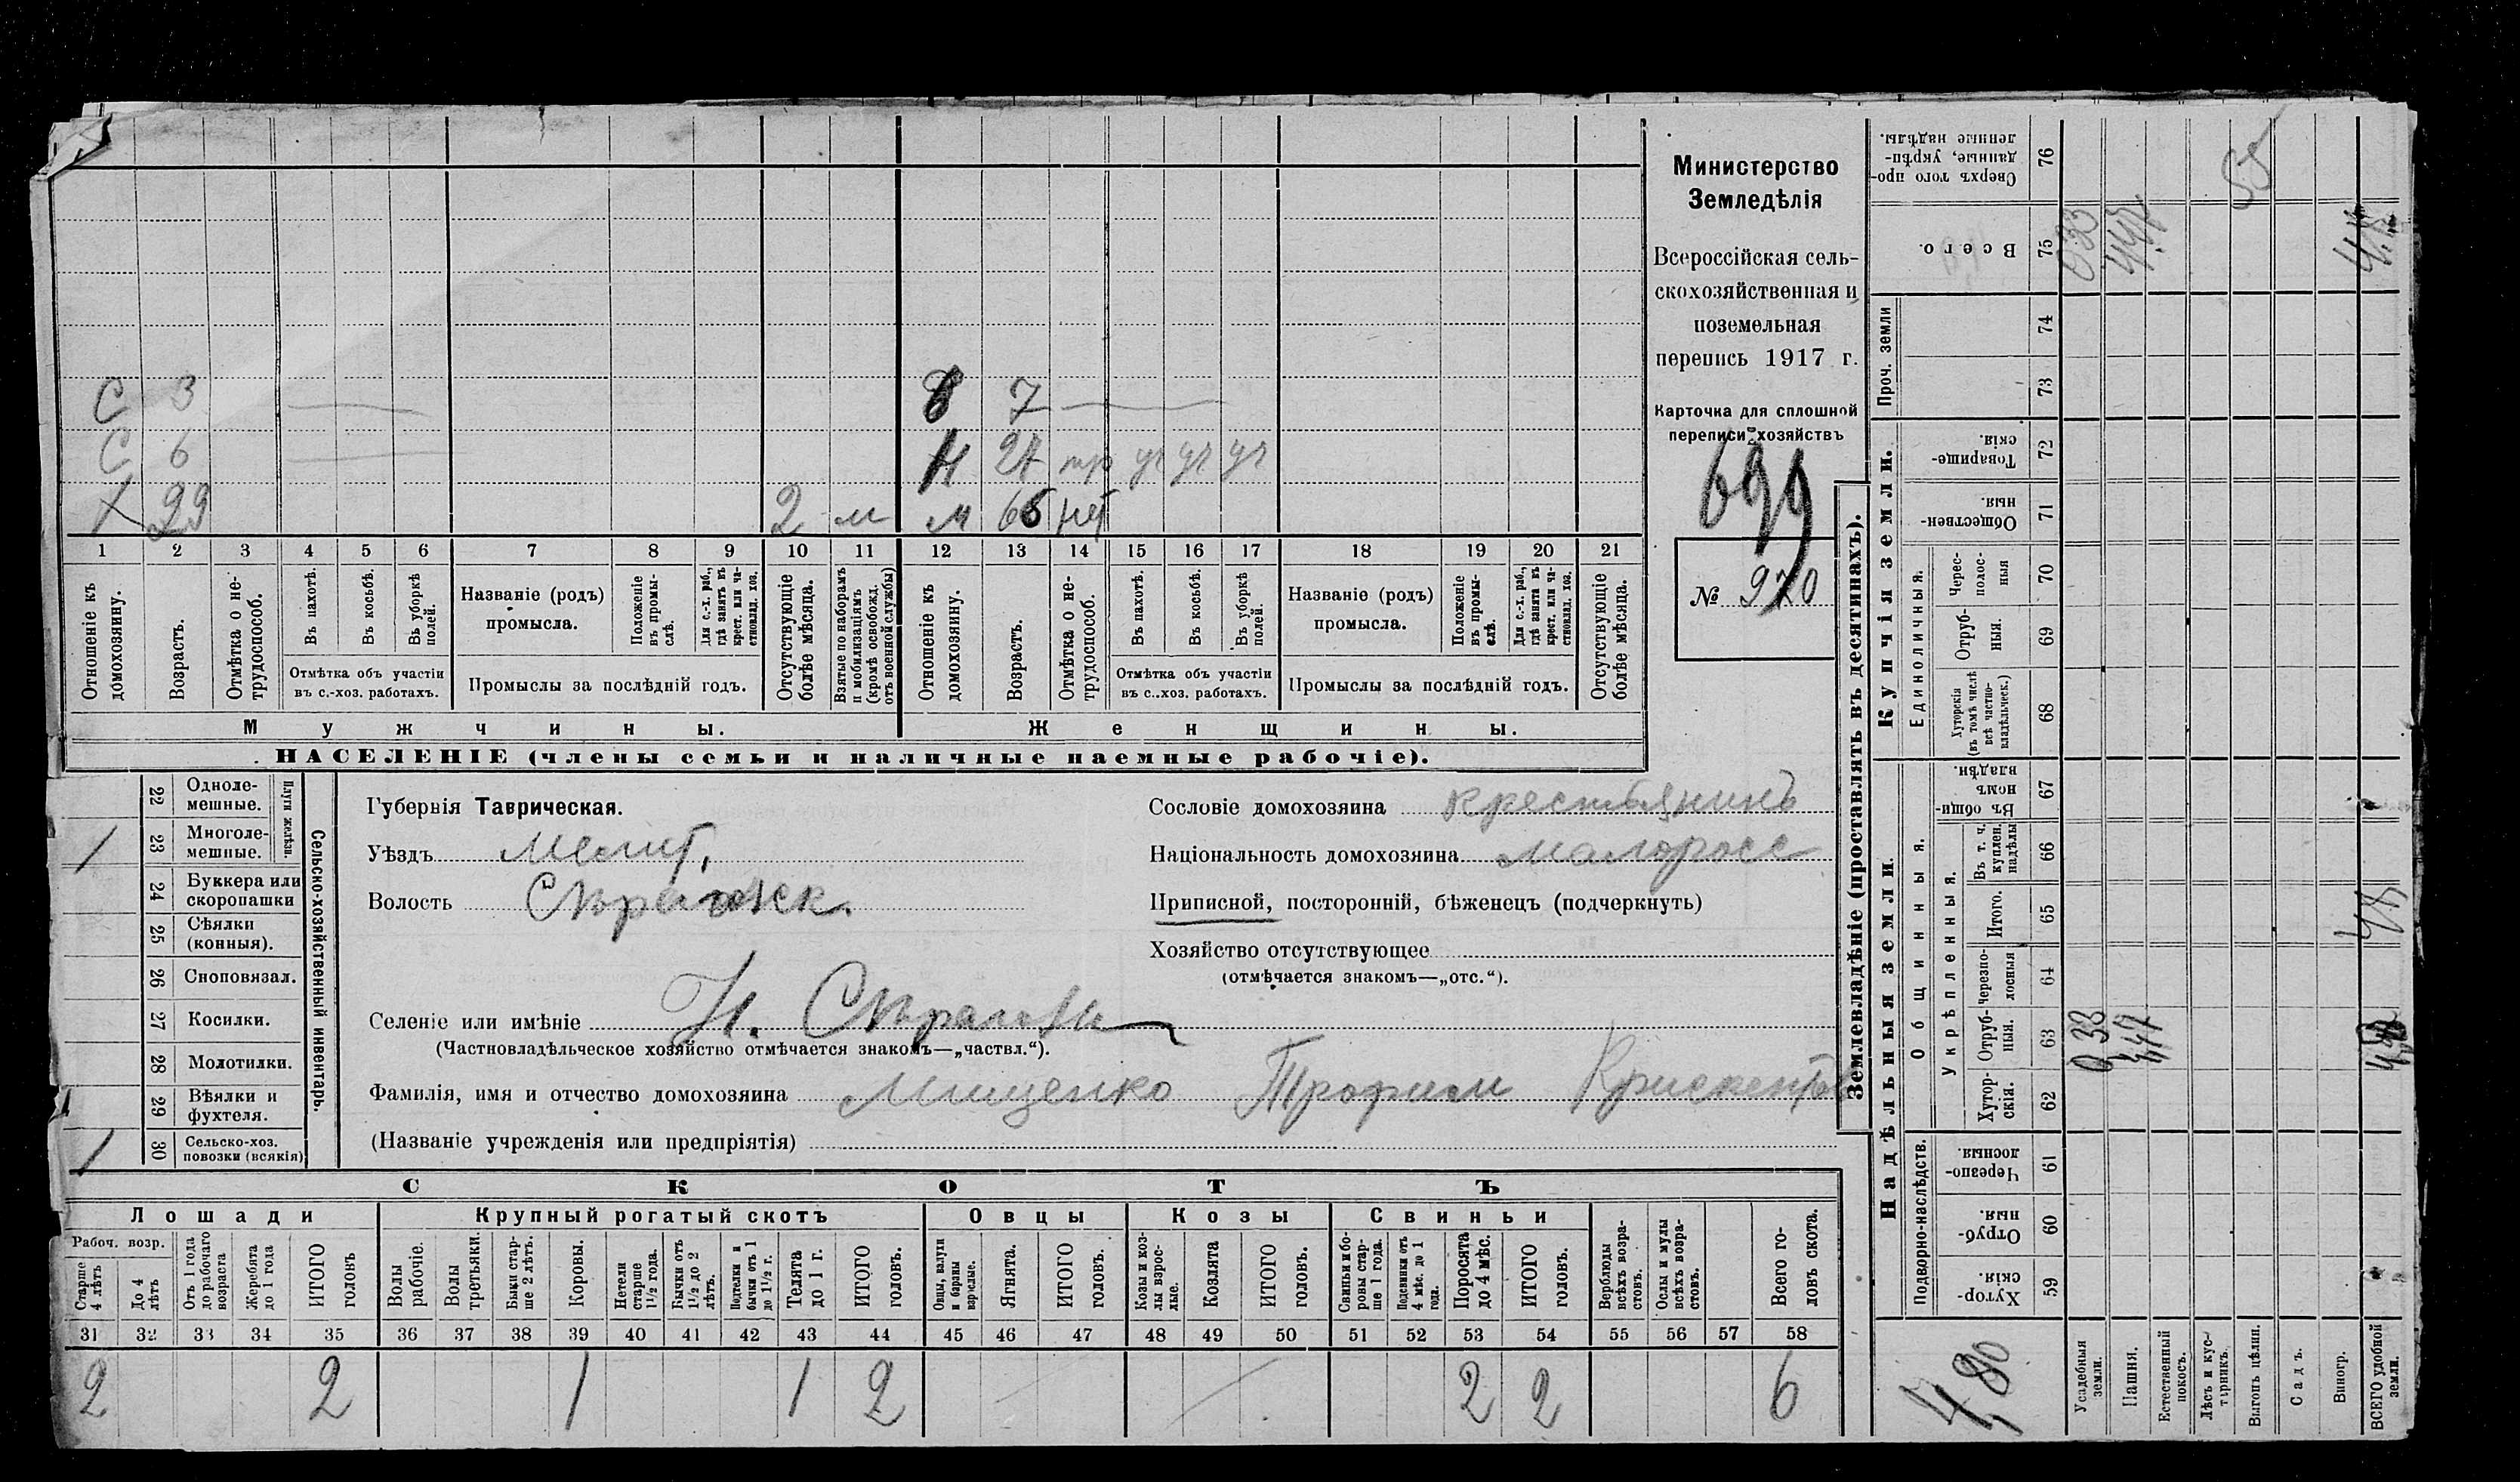 С 3 8 7
С 6 Н 27 тр уч уч уч
Х 29 2 м м 66 нет
1 2 3 4 5 6 7 8 9 10 11 12 13 14 15 16 17 18 19 20 21
Отношеніе къ домохозяину.
Возрастъ.
Отмѣтка о нетрудоспособ.
Въ пахотѣ.
Въ косьбѣ.
Въ уборкѣ полей.
Отмѣтка объ участіи
въ с.-хоз. работахъ.
Названіе (родъ)
промысла.
Положеніе въ промыслѣ.
Для с.-х. раб., гдѣ занятъ въ крест. или частновлад. хоз.
Промыслы за послѣдній годъ.
Отсутствующіе болѣе мѣсяца.
Взятые по наборамъ и мобилизаціямъ (кромѣ освобожд. отъ военной службы)
Отношеніе къ домохозяину.
Возрастъ.
Отмѣтка о нетрудоспособ.
Въ пахотѣ.
Въ косьбѣ.
Въ уборкѣ полей.
Отмѣтка объ участіи
въ с..хоз. работахъ.
Названіе (родъ)
промысла.
Положеніе въ промыслѣ.
Для с.-х. раб., гдѣ занята въ крест. или частновлад. хоз.
Промыслы за послѣдній годъ.
Отсутствующіе болѣе мѣсяца.
Мужчины.
Женщины.
НАСЕЛЕНІЕ (члены семьи и наличные наемные рабочіе).
Министерство
Земледѣлія
Всероссійская сель-
скохозяйственная и
поземельная
перепись 1917 г.
Карточка для сплошной
переписи хозяйствъ
699
№ 970
Сельско-хозяйственный инвентарь.
Плуги желѣзн.
22 Одноле-
мешные.
1 23 Многоле-
мешные.
24 Буккера или
скоропашки
25 Сѣялки
(конныя).
26 Сноповязал.
27 Косилки.
28 Молотилки.
1 29 Вѣялки и
фухтеля.
1 30 Сельско-хоз.
повозки (всякія)
Губернія Таврическая.
Уѣздъ Мелит.
Волость Сѣрогозск.
Селеніе или имѣніе Н. Сѣрогозы
(Частновладѣльческое хозяйство отмѣчается знакомъ—„частвл.“).
Фамилія, имя и отчество домохозяина Мищенко Трофим Крискентов
(Названіе учрежденія или предпріятія)
Сословіе домохозяина крестьянинъ
Національность домохозяина малоросс
Приписной, посторонній, бѣженецъ (подчеркнуть)
Хозяйство отсутствующее
(отмѣчается знакомъ—„отс.“).
СКОТЪ
Лошади
Крупный рогатый скотъ
Овцы
Козы
Свиньи
Рабоч. возр.
Старше 4 лѣтъ
До 4 лѣтъ
Отъ 1 года до рабочаго возраста
Жеребята до 1 года
ИТОГО головъ
Волы рабочіе.
Волы третьяки.
Быки старше 2 лѣтъ.
Коровы.
Нетели старше 1½ года.
Бычки отъ 1½ до 2 лѣтъ.
Подтелки и бычки отъ 1 до 1½ г.
Телята до 1 г.
ИТОГО головъ.
Овцы, валухи и бараны взрослые.
Ягнята.
ИТОГО головъ.
Козы и козлы взрослые.
Козлята
ИТОГО головъ.
Свиньи и боровы старше 1 года.
Подсвинки отъ 4 мѣс. до 1 года.
Поросята до 4 мѣс.
ИТОГО головъ.
Верблюды всѣхъ возрастовъ.
Ослы и мулы всѣхъ возрастовъ.
Всего головъ скота.
31 32 33 34 35 36 37 38 39 40 41 42 43 44 45 46 47 48 49 50 51 52 53 54 55 56 57 58
2 2 1 1 2 2 2 6
Землевладѣніе (проставлять въ десятинахъ).
Надѣльныя земли.
Купчія земли.
Проч. земли
Подворно-наслѣдств.
Общинныя.
Укрѣпленныя.
Единоличныя.
Сверхъ того проданные, укрѣпленные надѣлы. 76
Всего. 75
74
73
Товарищескія. 72
Общественныя. 71
Чересполосныя 70
Отрубныя. 69
Хуторскія (въ томъ числѣ всѣ частновладѣльческ.) 68
Въ общинномъ владѣн. 67
Въ т. ч. куплен. надѣлы 66
Итого. 65
Черезполосныя 64
Отрубныя. 63
Хуторскія. 62
Черезполосныя. 61
Отрубныя. 60
Хуторскія. 59
4,80
Усадебныя земли.
Пашня.
Естественный покосъ.
Лѣсъ и кустарникъ.
Выгонъ цѣлин.
Садъ.
Виногр.
ВСЕГО удобной земли.
0 33
447
4.8
55
033
447
4.8